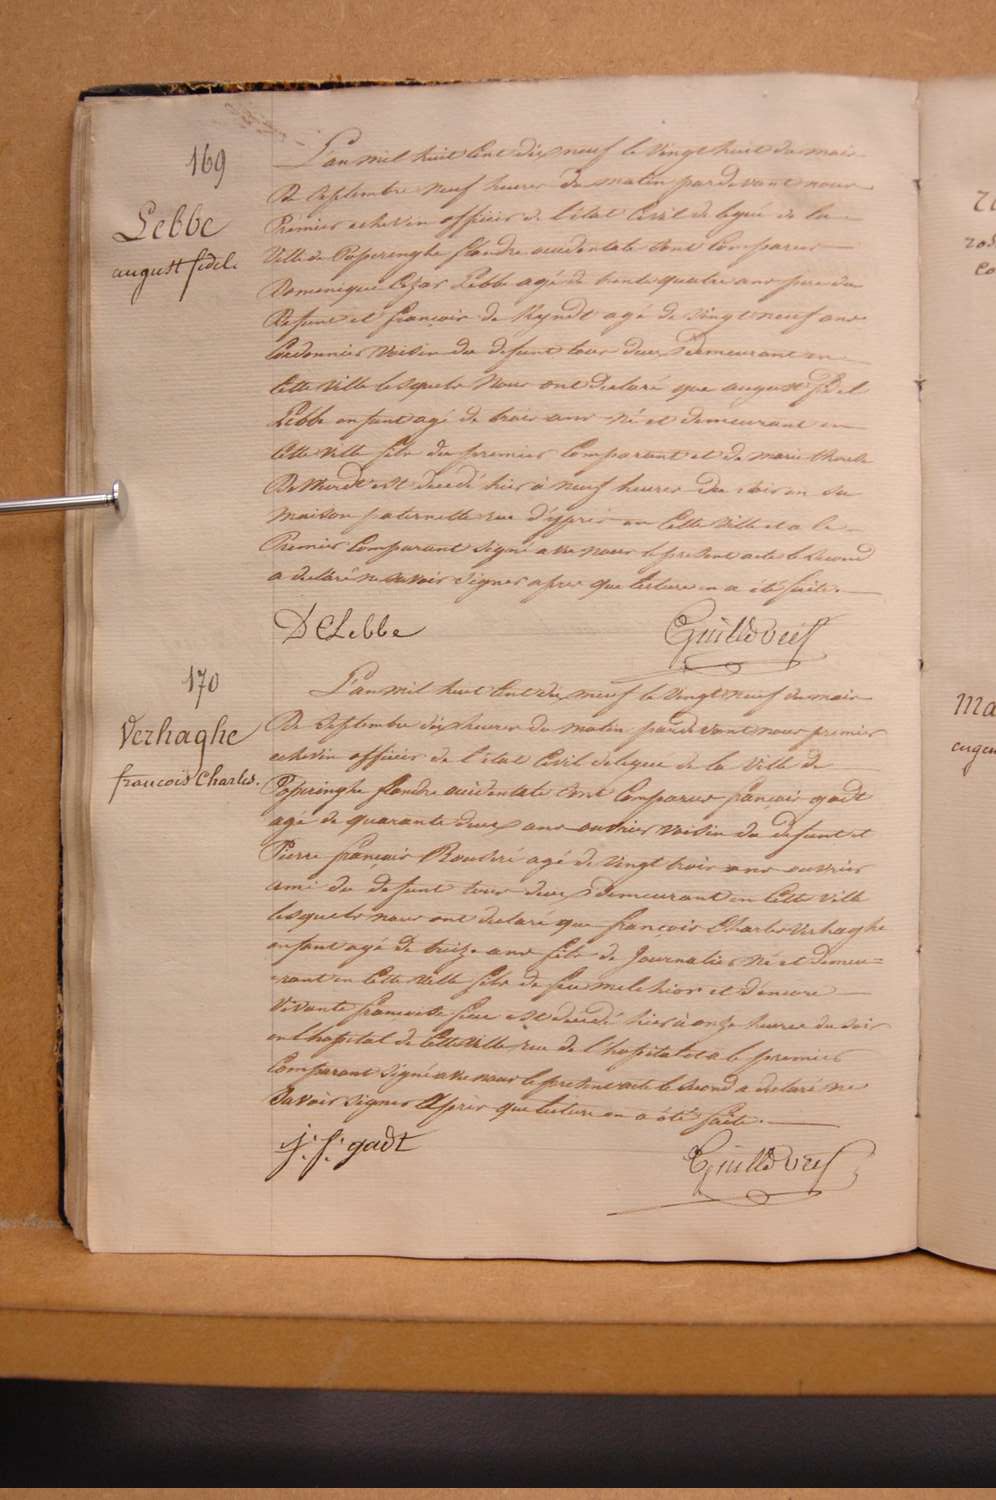 169
Lebbe
august fidel.
L'an mil huit Cent dix neuf le vingt huit du mois
De Septembre neuf heures du matin pardevant nous
Premier echevin officier de l'état Civil delegué de la
Ville de Poperinghe flandre occidentale sont Comparus
Domenique Cesar Lebbe agé de trente quatre ans pere du
Defunt et françois de Ryndt agé de vingt neuf ans
Cordonnier voisin du defunt tous deux Demeurant en
Cette ville lesquels Nous ont declaré que august fidel
Lebbe enfant agé de trois ans né et demeurant en
Cette ville fils du premier Comparant et de marie
est decedé hier à neuf heures du soir en sa
maison paternelle rue d'ypres en Cette ville et a le
Premier Comparant signé avec nous le present acte le second
a declaré ne savoir signer apres que lecture en a été faite.
D C Lebbe
170
Verhaghe
francois Charles.
L'an mil huit Cent dix neuf le vingt neuf du mois
De Septembre dix heures du matin pardevant nous premier
echevin officier de l'état Civil delegue de la Ville de
Poperinghe flandre occidentale sont Comparus francois gadt
agé de quarante deux ans ouvrier voisin du defunt et
Pierre françois agé de vingt trois ans ouvrier
ami du defunt tous deux Demeurant en Cette ville
lesquels nous ont declaré que françois Charles Verhaghe
enfant agé de treize ans fils de Journalier né et demeu=
-rant en Cette ville fils de feu melchior et d'encore
vivante francoise est decedé hier à onze heures du soir
en l'hopital de Cette ville rue de l'hopital et a le premier
Comparant signé avec nous le present acte le second a declaré ne
Savoir signer Apres que lecture en a été faite.
j: f: gadt
Ma